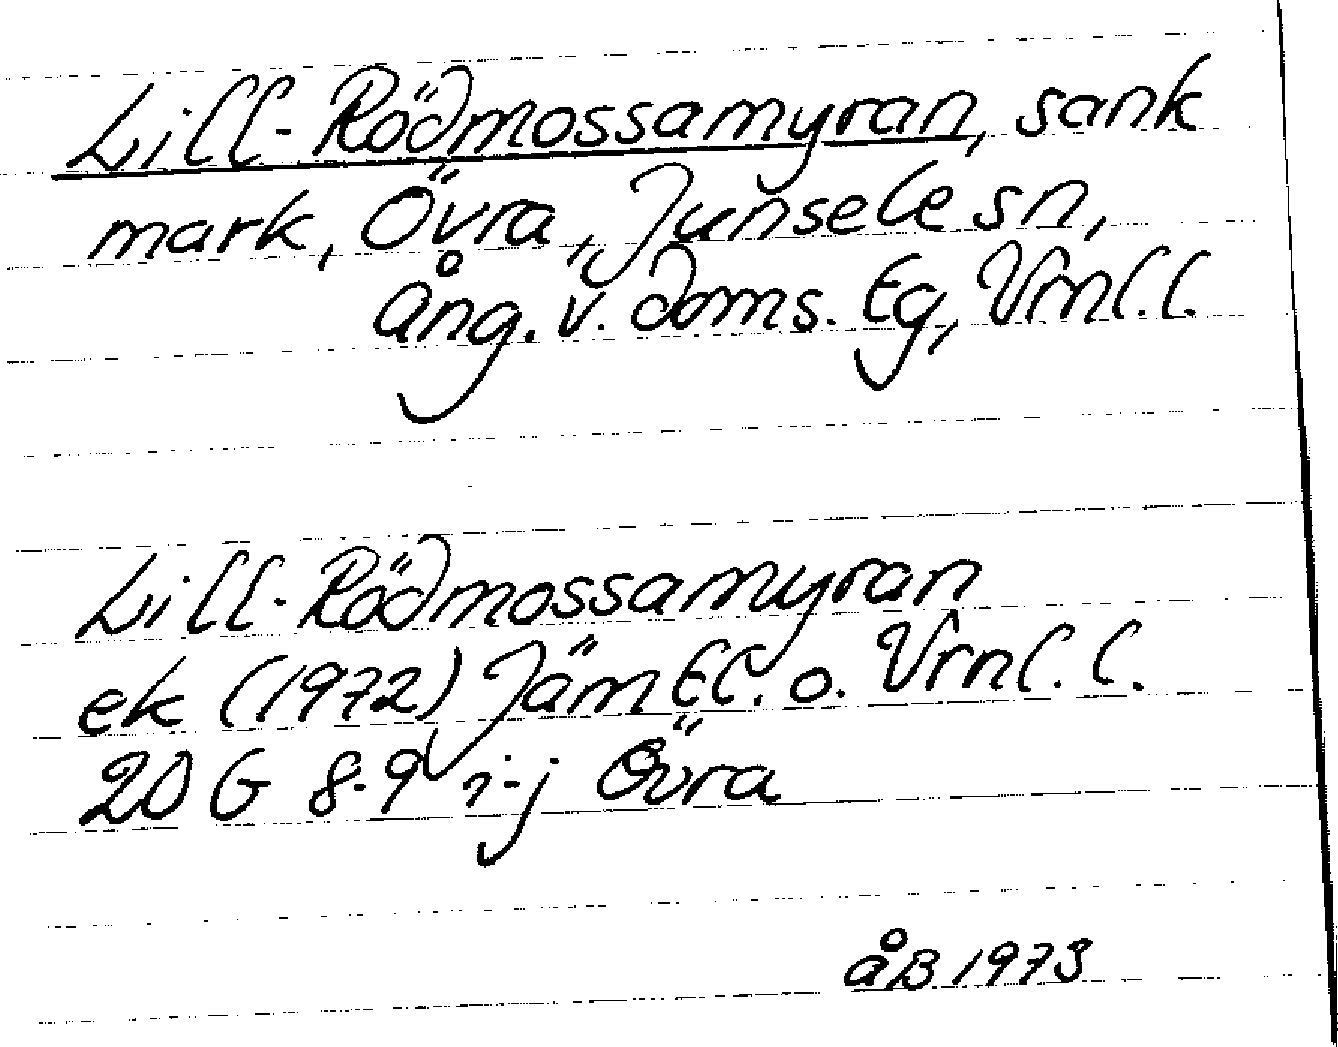 Lill-Rödmossamyran, sank
mark, Övra, Junsele sn,
Ång. v. doms. tg, Vrnl. l.
Lill-Rödmossamyran
ek (1972) Jämtl. o. Vrnl. l.
20 G 8-9 i-j Övra
åB 1973